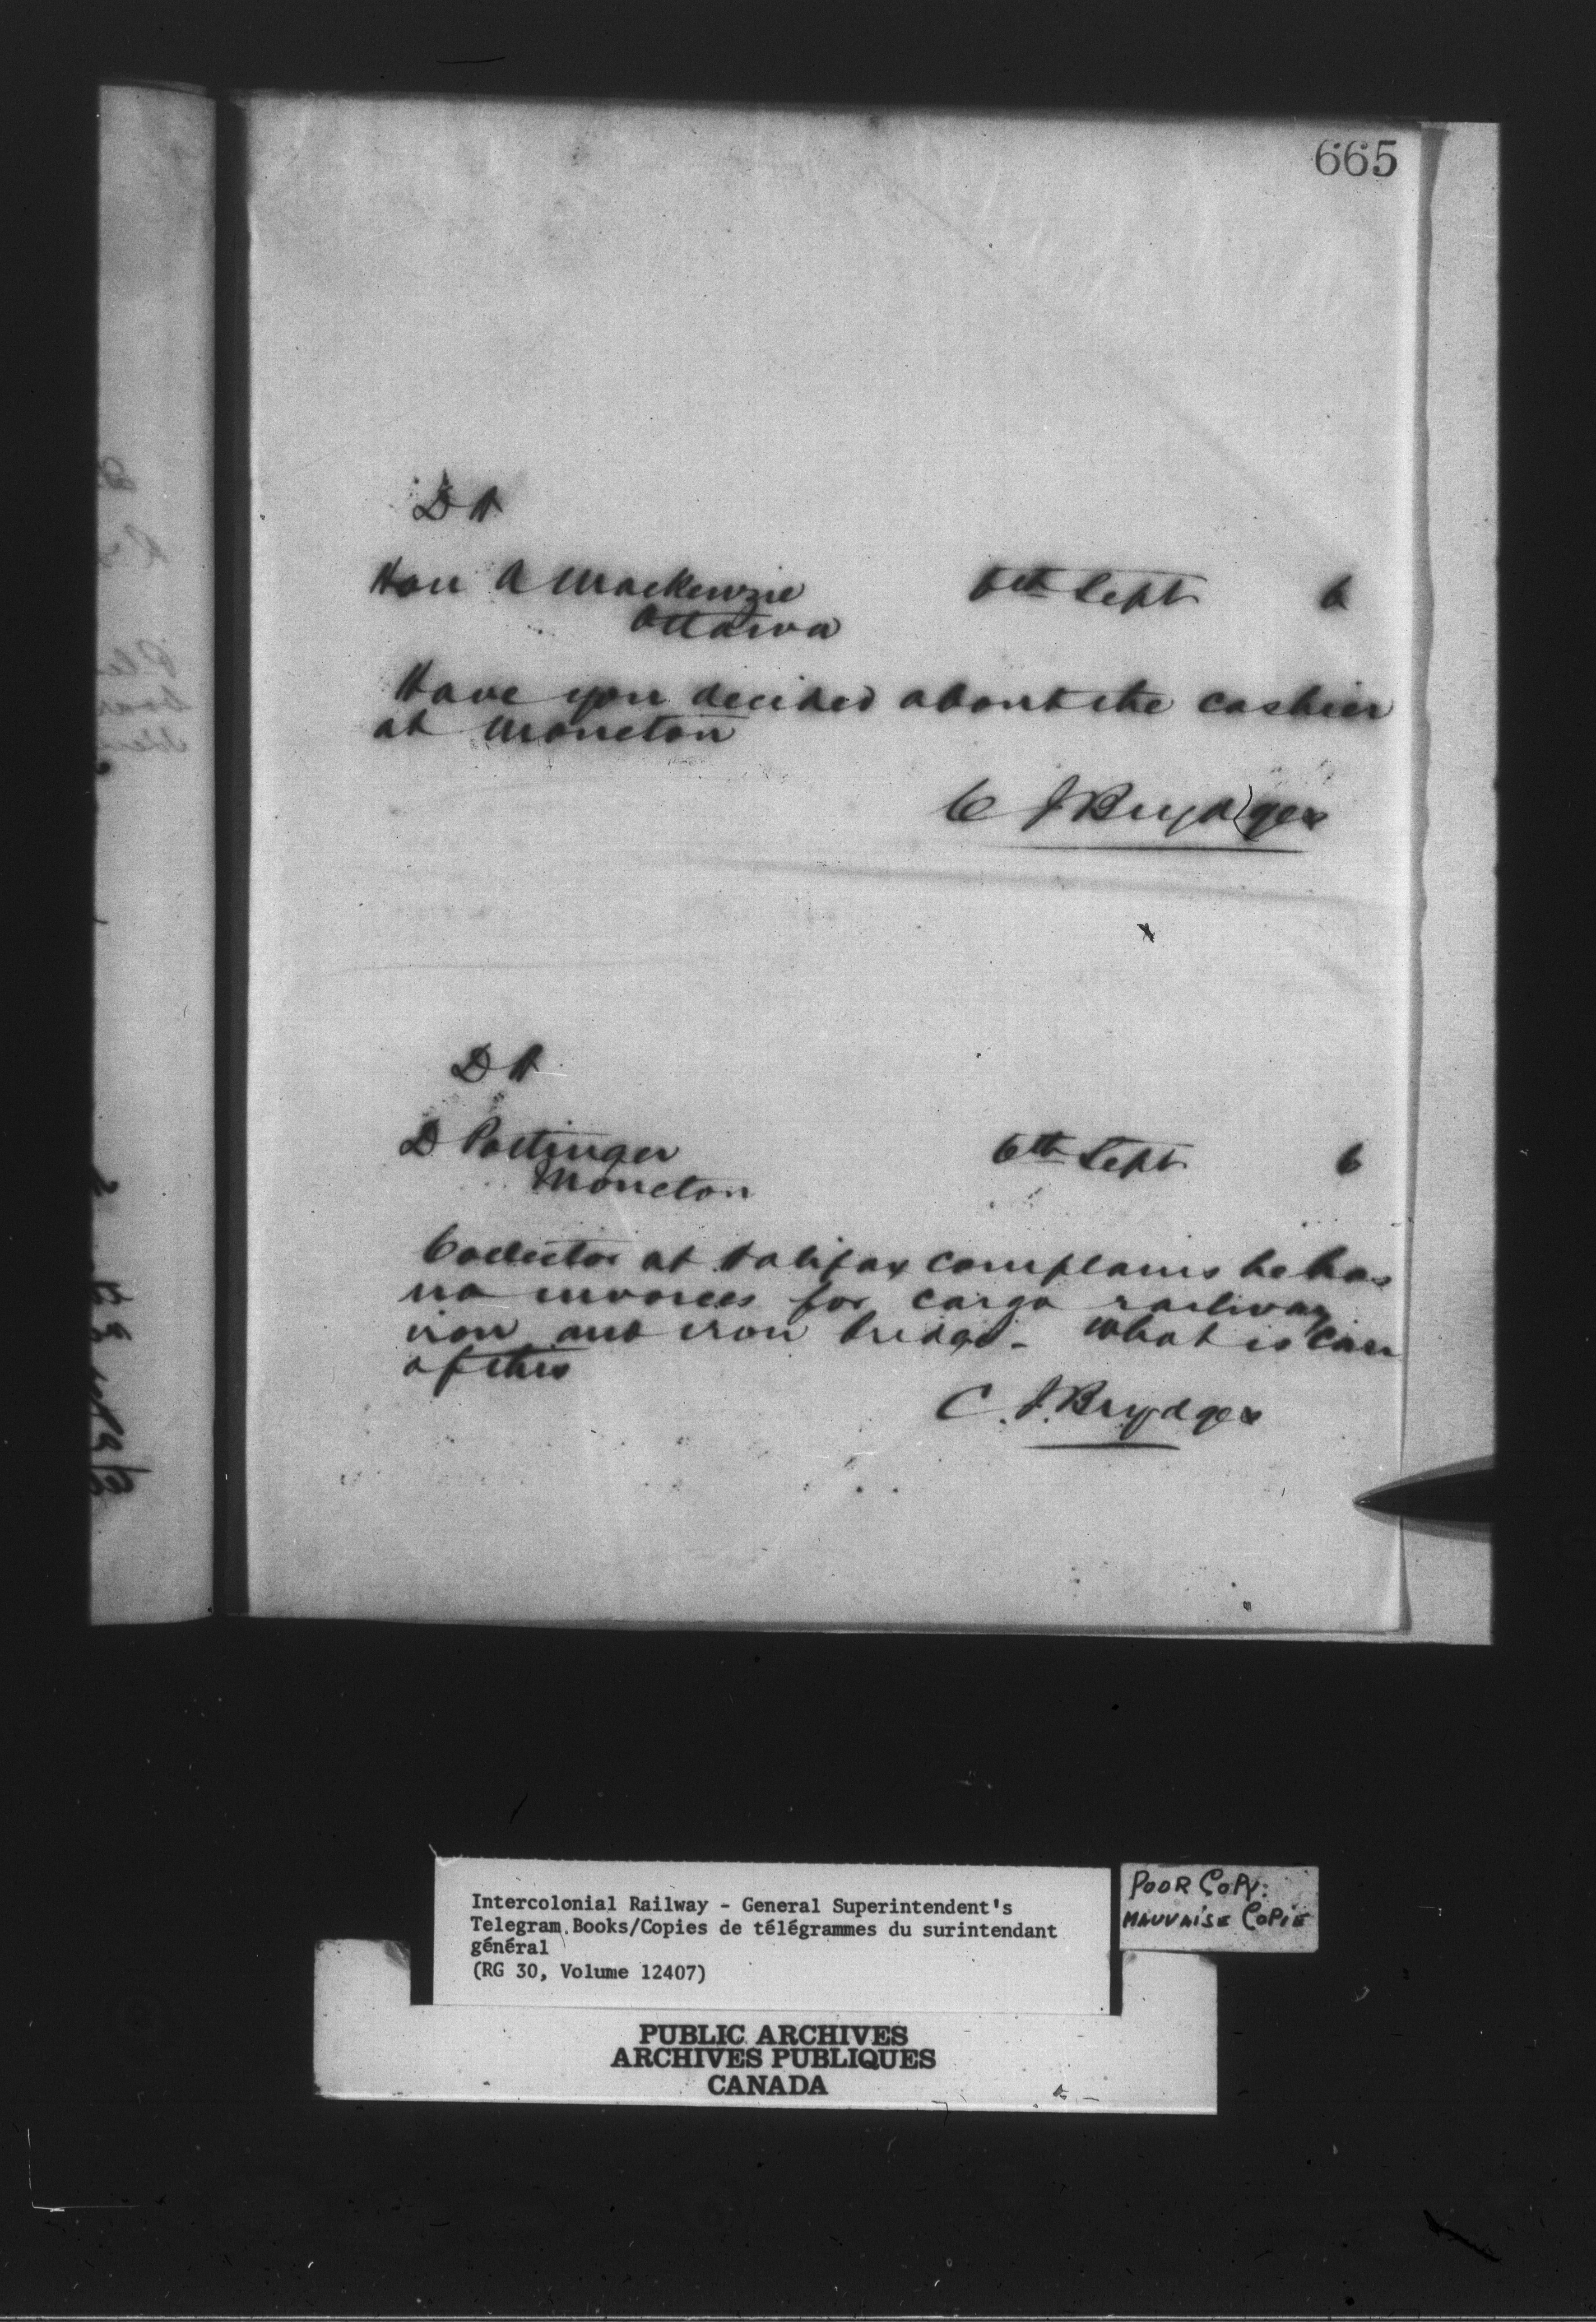 665
D H
Hon A Mackenzie 6th Sept 6
Ottawa
Have you decided about the cashier
at Moncton
C J Brydges
D H
D Pottinger 6th Sept 6
Moncton
Collector at Halifax complains he has
no invoices for cargo railway
iron and iron bridge - What is
of this
C. J. Brydges
Intercolonial Railway - General Superintendent's
Telegram Books/Copies de télégrammes du surintendant
général
(RG 30, Volume 12407)
POOR COPY.
MAUVAISE COPIE
PUBLIC ARCHIVES
ARCHIVES PUBLIQUES
CANADA